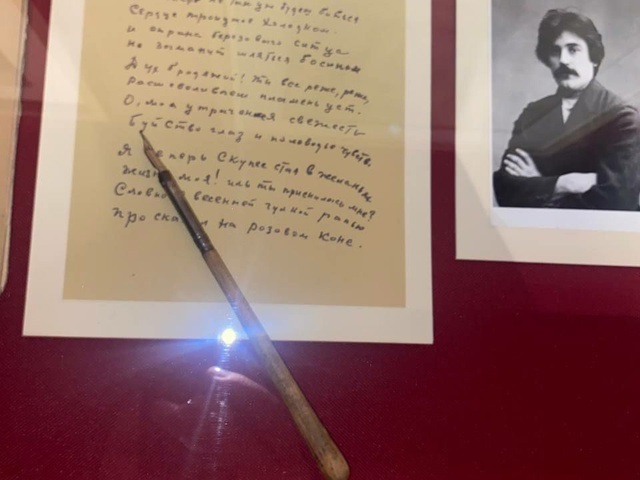 не так будешь биться
Сердце тронутое холодком.
и страна березового ситца
не заманит шляться босиком
Дух бродяжий! ты все реже, реже,
расшевеливаеш пламень уст.
О, моя утраченная свежесть
буйство глаз и половодье чувств.
Я теперь Скупее стал в желаньях
жизнь моя! иль ты приснилась мне?
Словно я весенней гулкой ранью
проскакал на розовом коне.